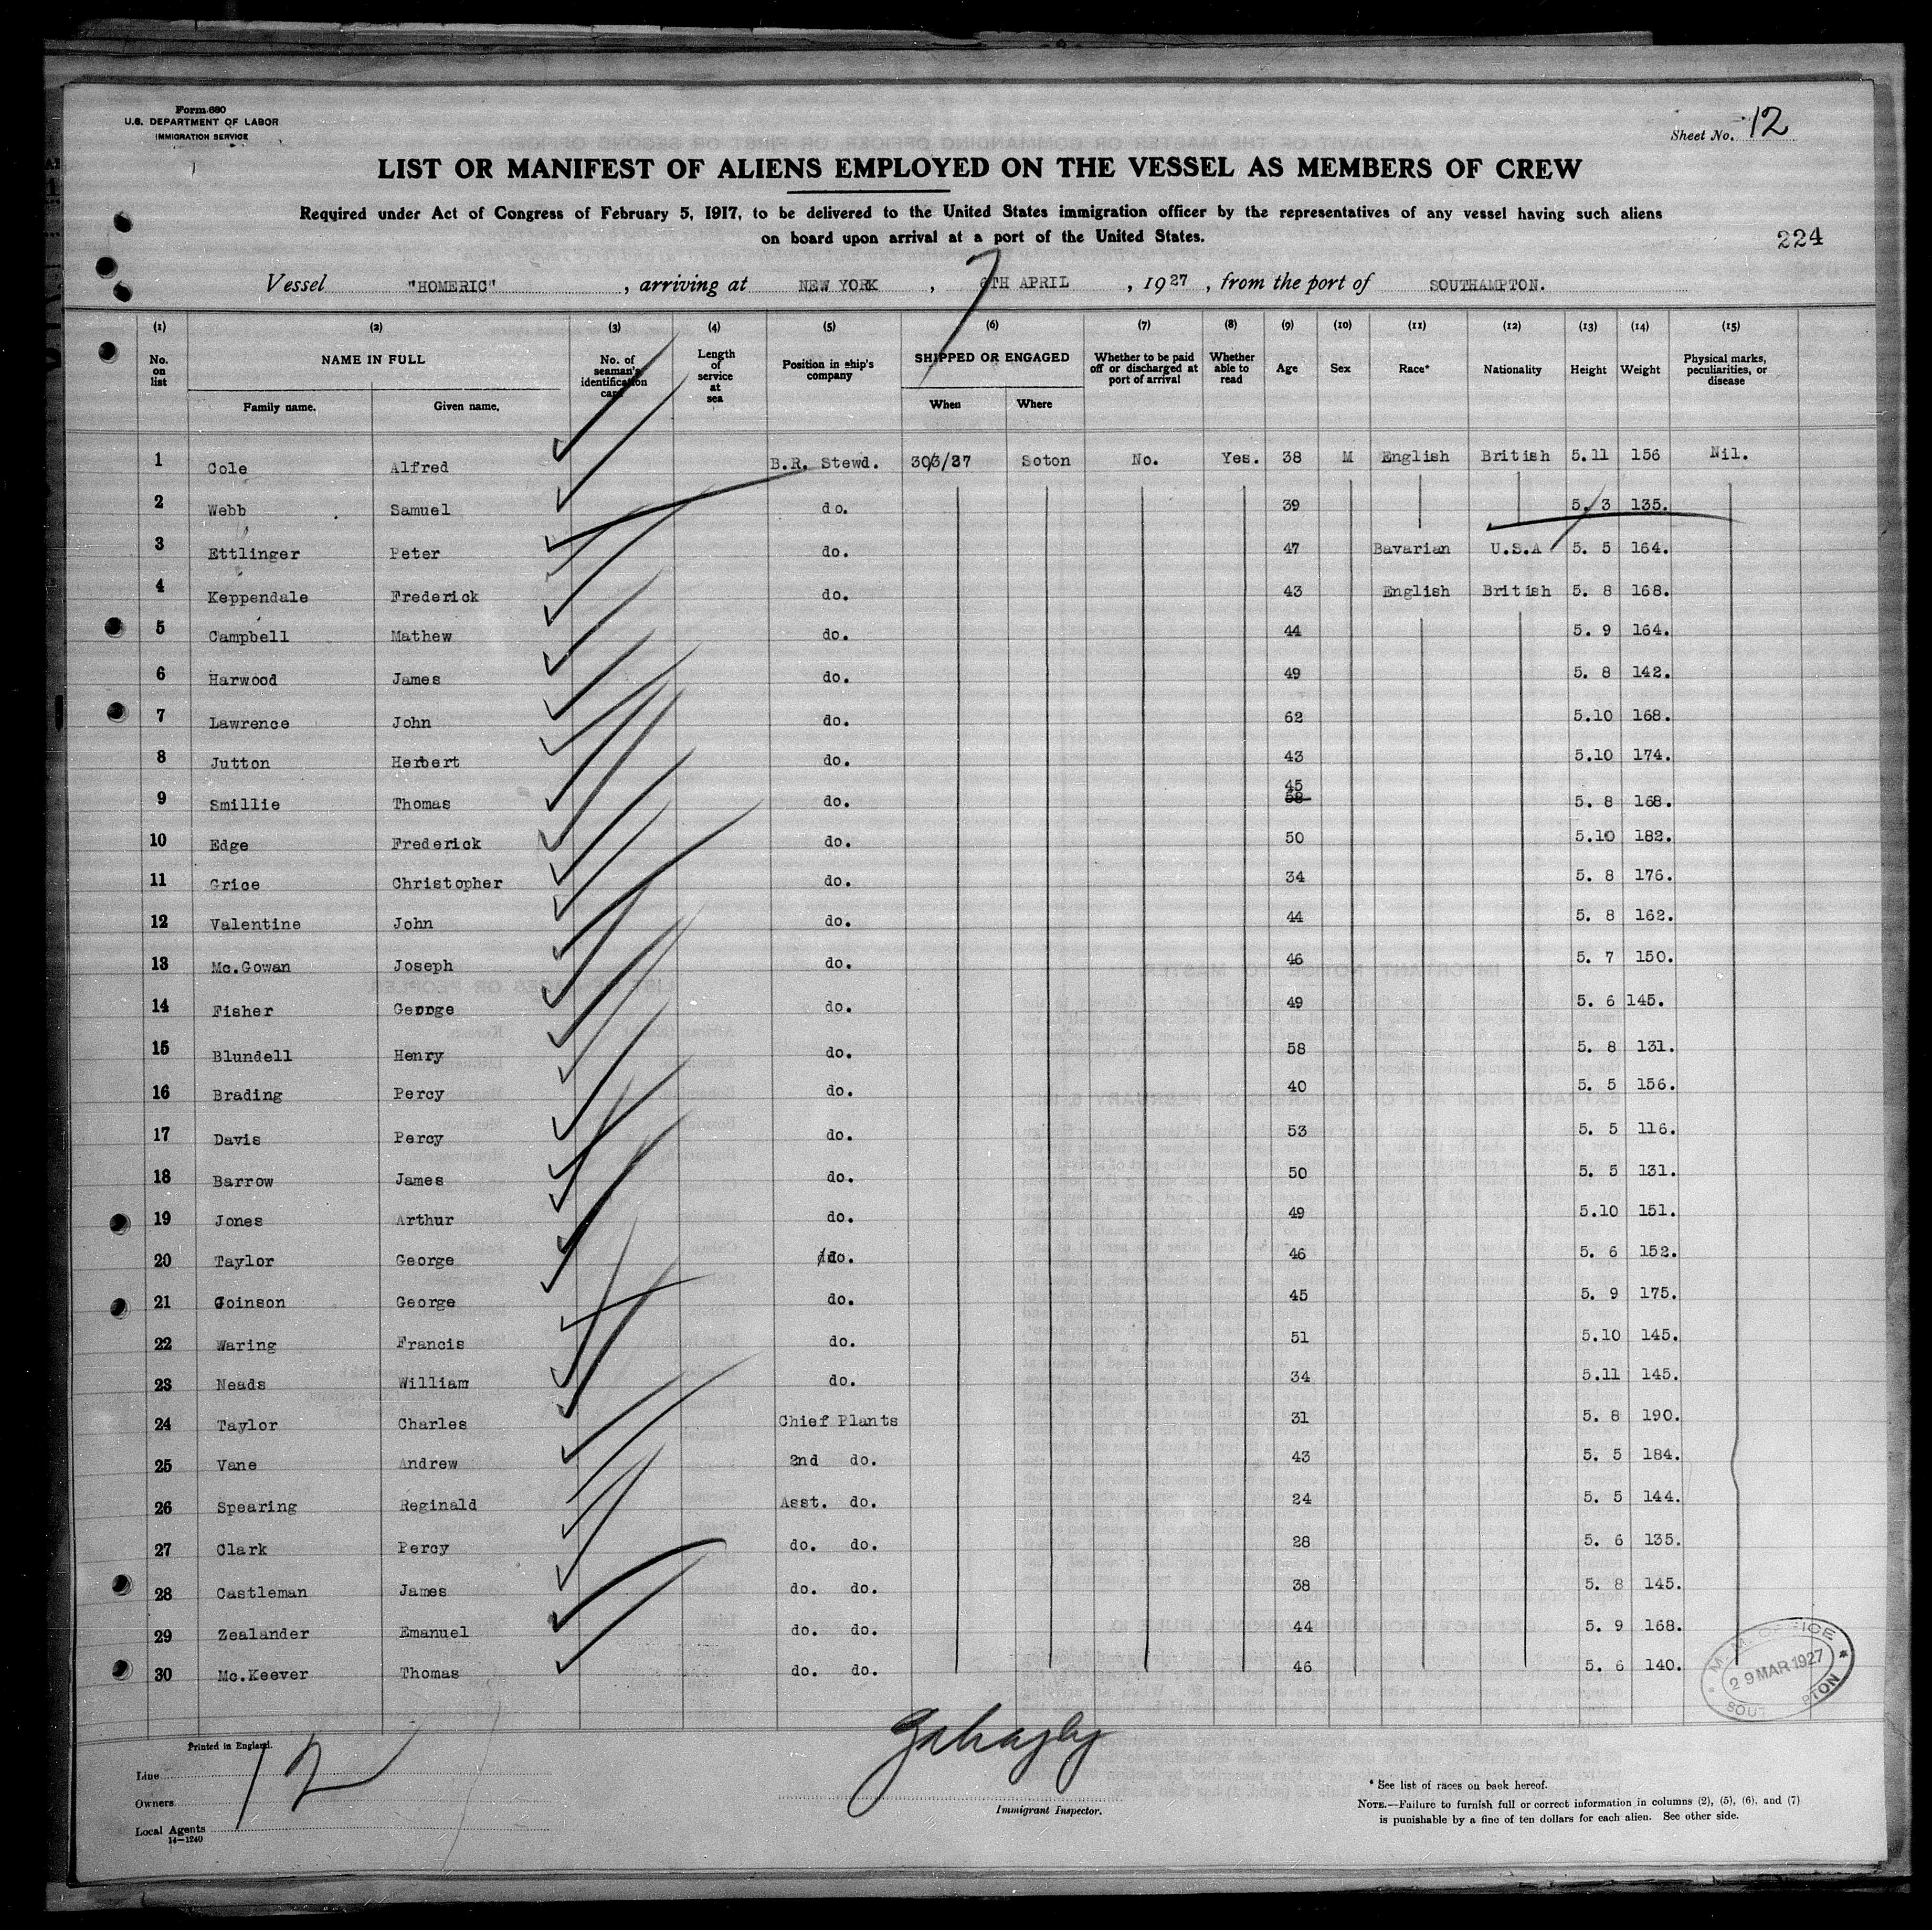 Form 680
U.S. DEPARTMENT OF LABOR
IMMIGRATION SERVICE
Sheet No. 12
LIST OR MANIFEST OF ALIENS EMPLOYED ON THE VESSEL AS MEMBERS OF CREW
Required under Act of Congress of February 5, 1917, to be delivered to the United States immigration officer by the representatives of any vessel having such aliens
on board upon arrival at a port of the United States.
224
Vessel "HOMERIC", arriving at NEW YORK, 7 6TH APRIL, 1927, from the port of SOUTHAMPTON.
(1) (2) (3) (4) (5) (6) (7) (8) (9) (10) (11) (12) (13) (14) (15)
No. on list NAME IN FULL Family name. Given name. No. of seaman's identification card Length of service at sea Position in ship's company SHIPPED OR ENGAGED When Where Whether to be paid off or discharged at port of arrival Whether able to read Age Sex Race* Nationality Height Weight Physical marks, peculiarities, or disease
1 Cole Alfred B.R. Stewd. 30/3/27 Soton No. Yes. 38 M English British 5.11 156 Nil.
2 Webb Samuel do. 39 5. 3 135.
3 Ettlinger Peter do. 47 Bavarian U.S.A 5. 5 164.
4 Keppendale Frederick do. 43 English British 5. 8 168.
5 Campbell Mathew do. 44 5. 9 164.
6 Harwood James do. 49 5. 8 142.
7 Lawrence John do. 62 5.10 168.
8 Jutton Herbert do. 43 5.10 174.
9 Smillie Thomas do. 45 58 5. 8 168.
10 Edge Frederick do. 50 5.10 182.
11 Grice Christopher do. 34 5. 8 176.
12 Valentine John do. 44 5. 8 162.
13 Mc.Gowan Joseph do. 46 5. 7 150.
14 Fisher George do. 49 5. 6 145.
15 Blundell Henry do. 58 5. 8 131.
16 Brading Percy do. 40 5. 5 156.
17 Davis Percy do. 53 5. 5 116.
18 Barrow James do. 50 5. 5 131.
19 Jones Arthur do. 49 5.10 151.
20 Taylor George do. 46 5. 6 152.
21 Goinson George do. 45 5. 9 175.
22 Waring Francis do. 51 5.10 145.
23 Neads William do. 34 5.11 145.
24 Taylor Charles Chief Plants 31 5. 8 190.
25 Vane Andrew 2nd do. 43 5. 5 184.
26 Spearing Reginald Asst. do. 24 5. 5 144.
27 Clark Percy do. do. 28 5. 6 135.
28 Castleman James do. do. 38 5. 8 145.
29 Zealander Emanuel do. do. 44 5. 9 168.
30 Mc.Keever Thomas do. do. 46 5. 6 140.
29 MAR 1927
Printed in England.
12
Line
Owners
Local Agents
14-1240
Immigrant Inspector.
* See list of races on back hereof.
NOTE.—Failure to furnish full or correct information in columns (2), (5), (6), and (7)
is punishable by a fine of ten dollars for each alien. See other side.